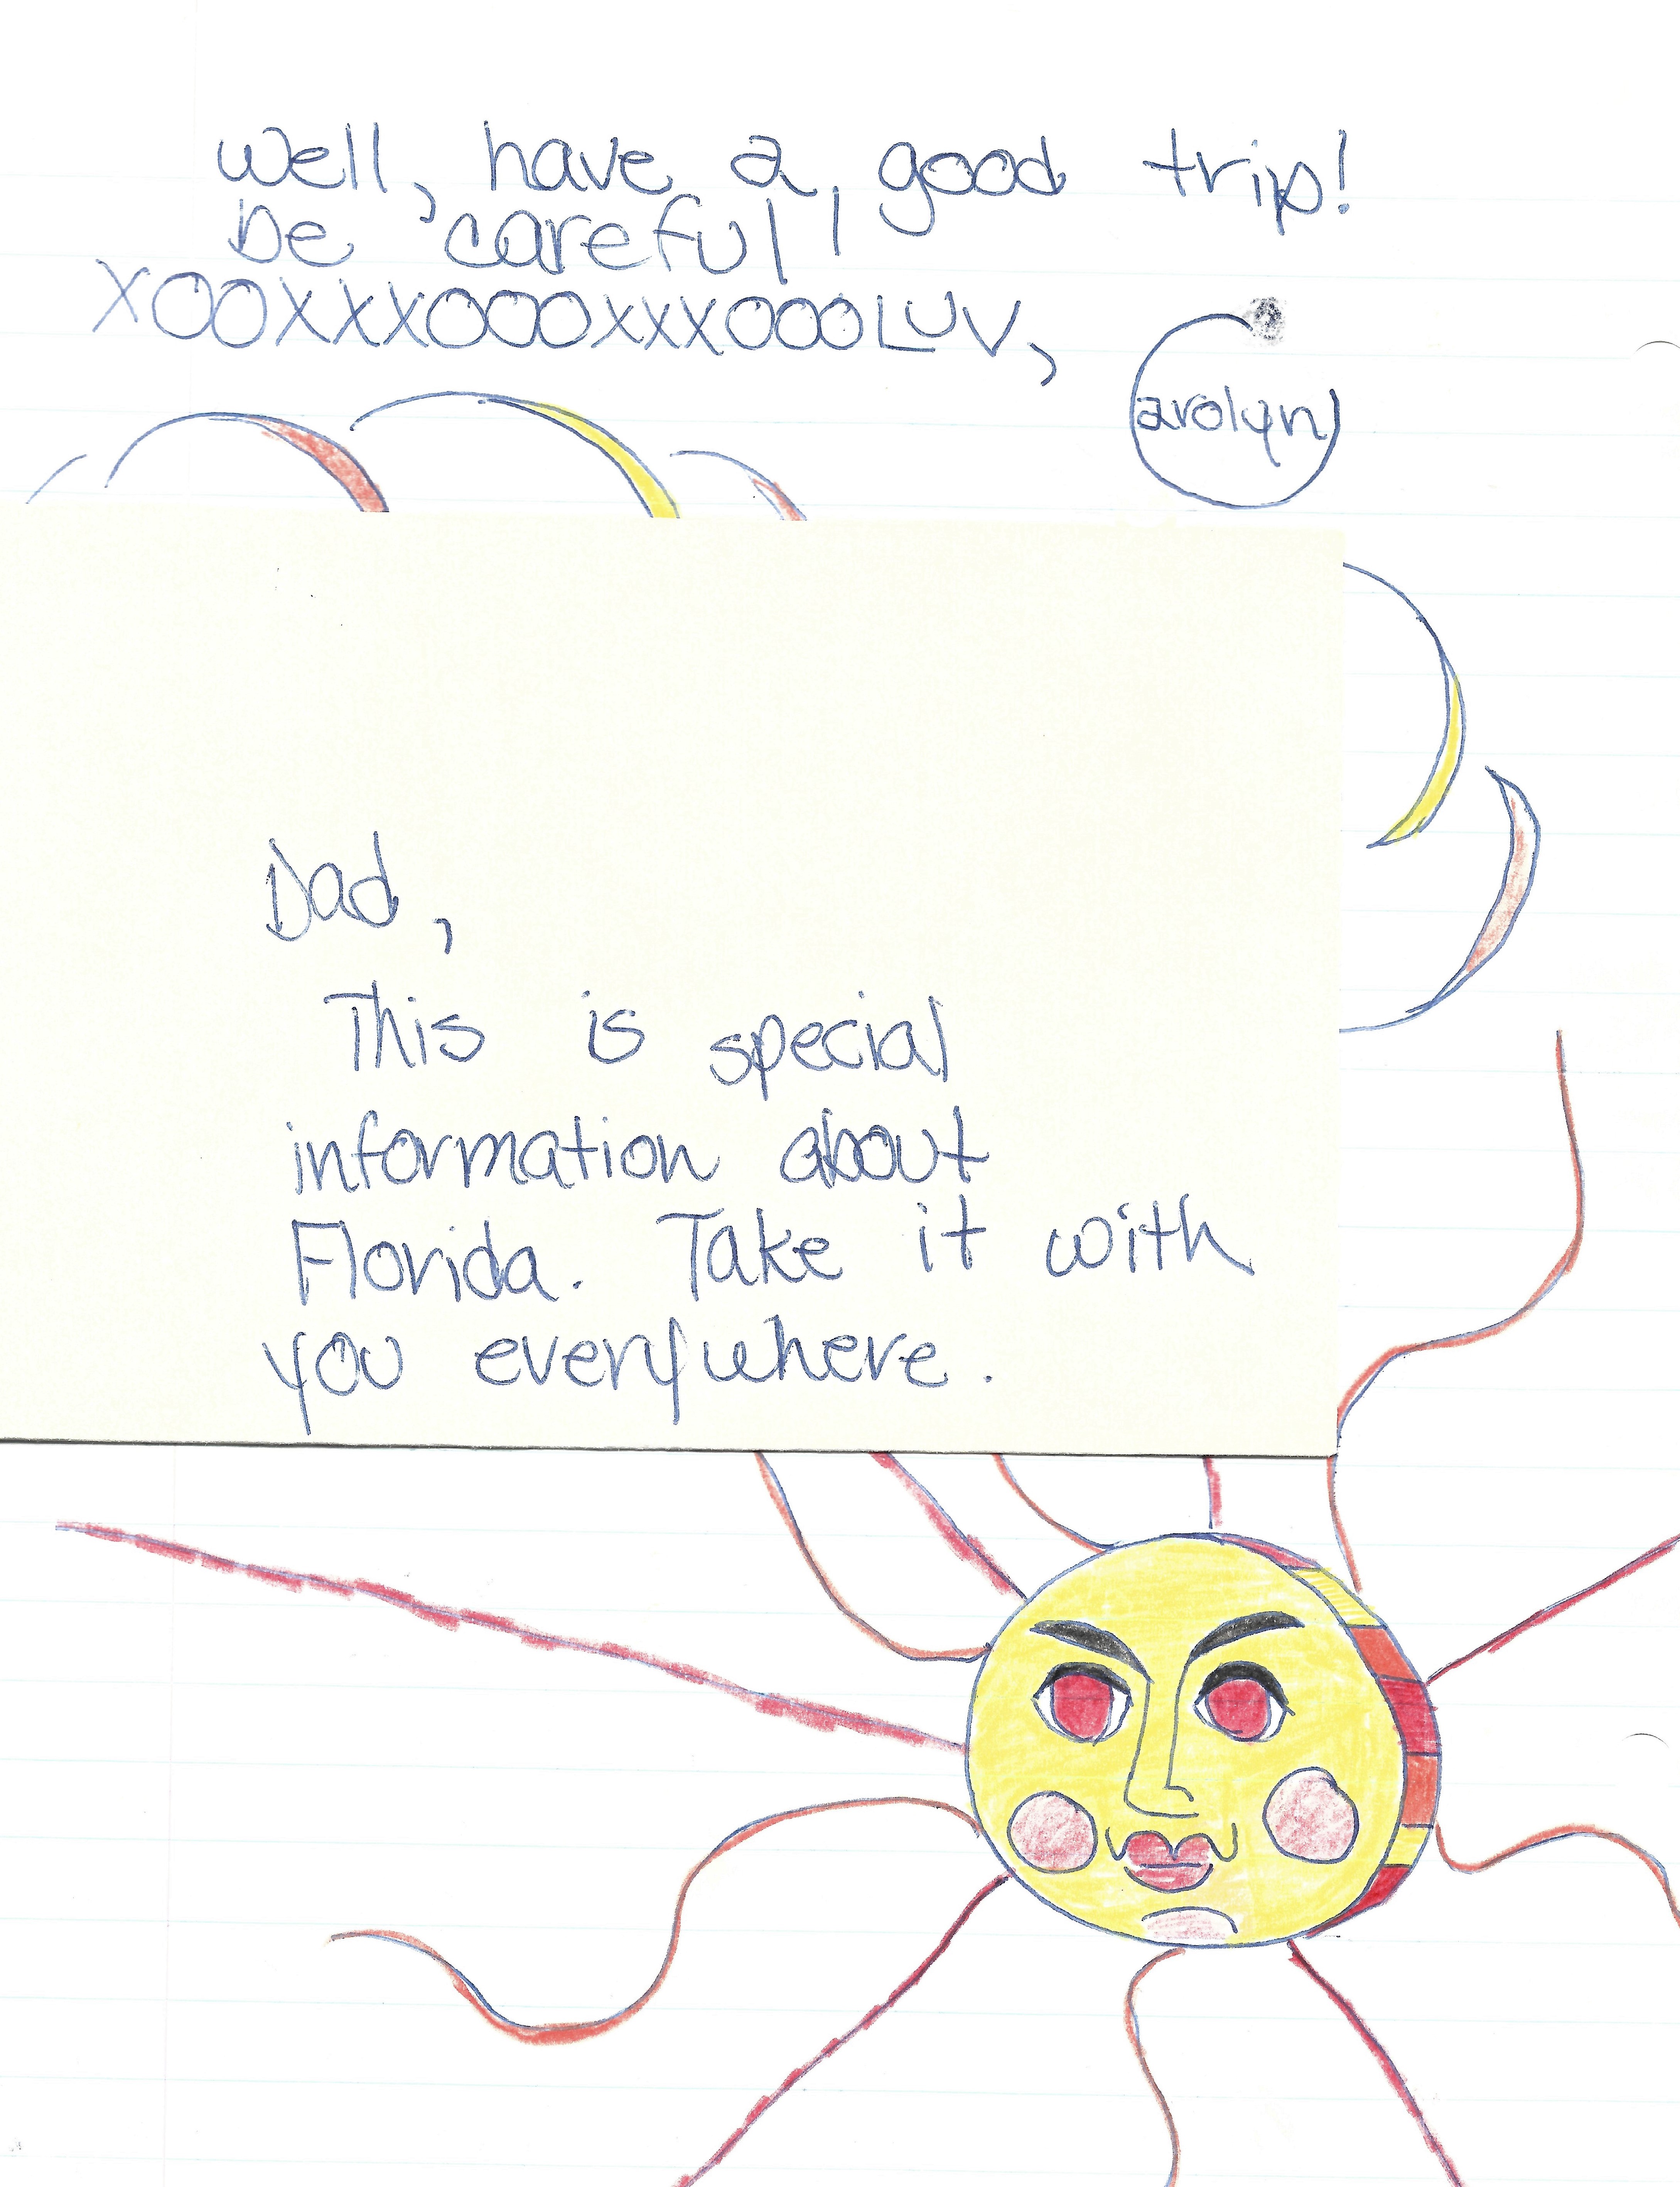 well, have a good trip!
be careful!
XOOXXXOOOXXXOOOLUV,
Carolyn
Dad,
This is special
information about
Florida. Take it with
you everywhere.